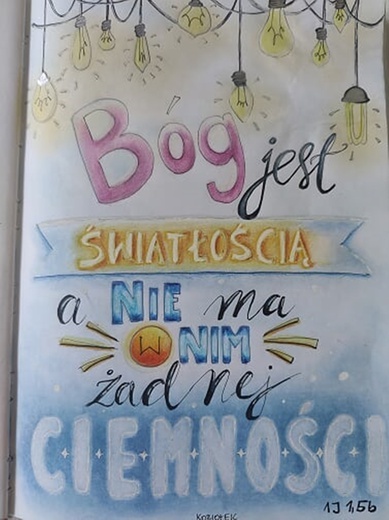 Bóg jest
ŚWIATŁOŚCIĄ
a NIE ma
W NIM
żadnej
CIEMNOŚCI
KOZIOŁEK
1J 1,5b